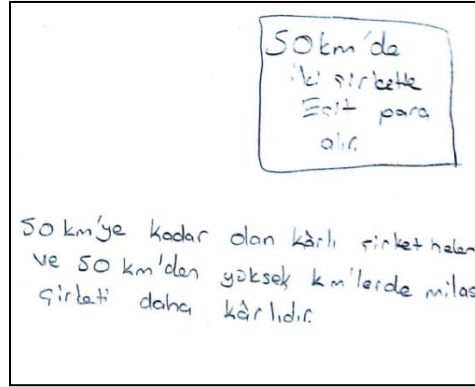 50 km'de
iki şirkette
Eşit para
alır.
50 km'ye kadar olan kârlı şirket helen
ve 50 km'den yüksek km'lerde milas
şirketi daha kârlıdır.